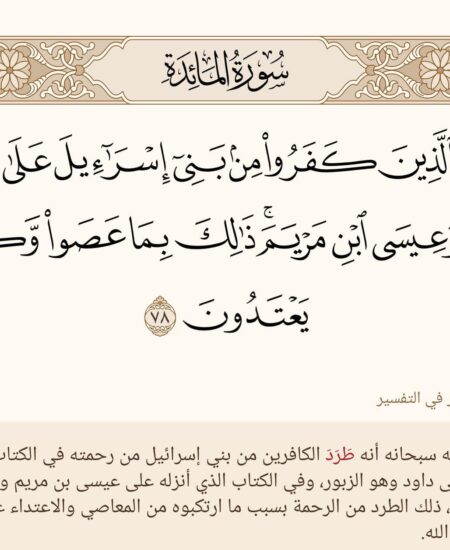 سُورَةُ المَائِدَةِ
ٱلَّذِينَ كَفَرُوا۟ مِنۢ بَنِىٓ إِسْرَٰٓءِيلَ عَلَىٰ
وَعِيسَى ٱبْنِ مَرْيَمَ ۚ ذَٰلِكَ بِمَا عَصَوا۟ وَّ
يَعْتَدُونَ ٧٨
في التفسير
سبحانه أنه طَرَدَ الكافرين من بني إسرائيل من رحمته في الكتاب
داود وهو الزبور، وفي الكتاب الذي أنزله على عيسى بن مريم و
، ذلك الطرد من الرحمة بسبب ما ارتكبوه من المعاصي والاعتداء
الله.